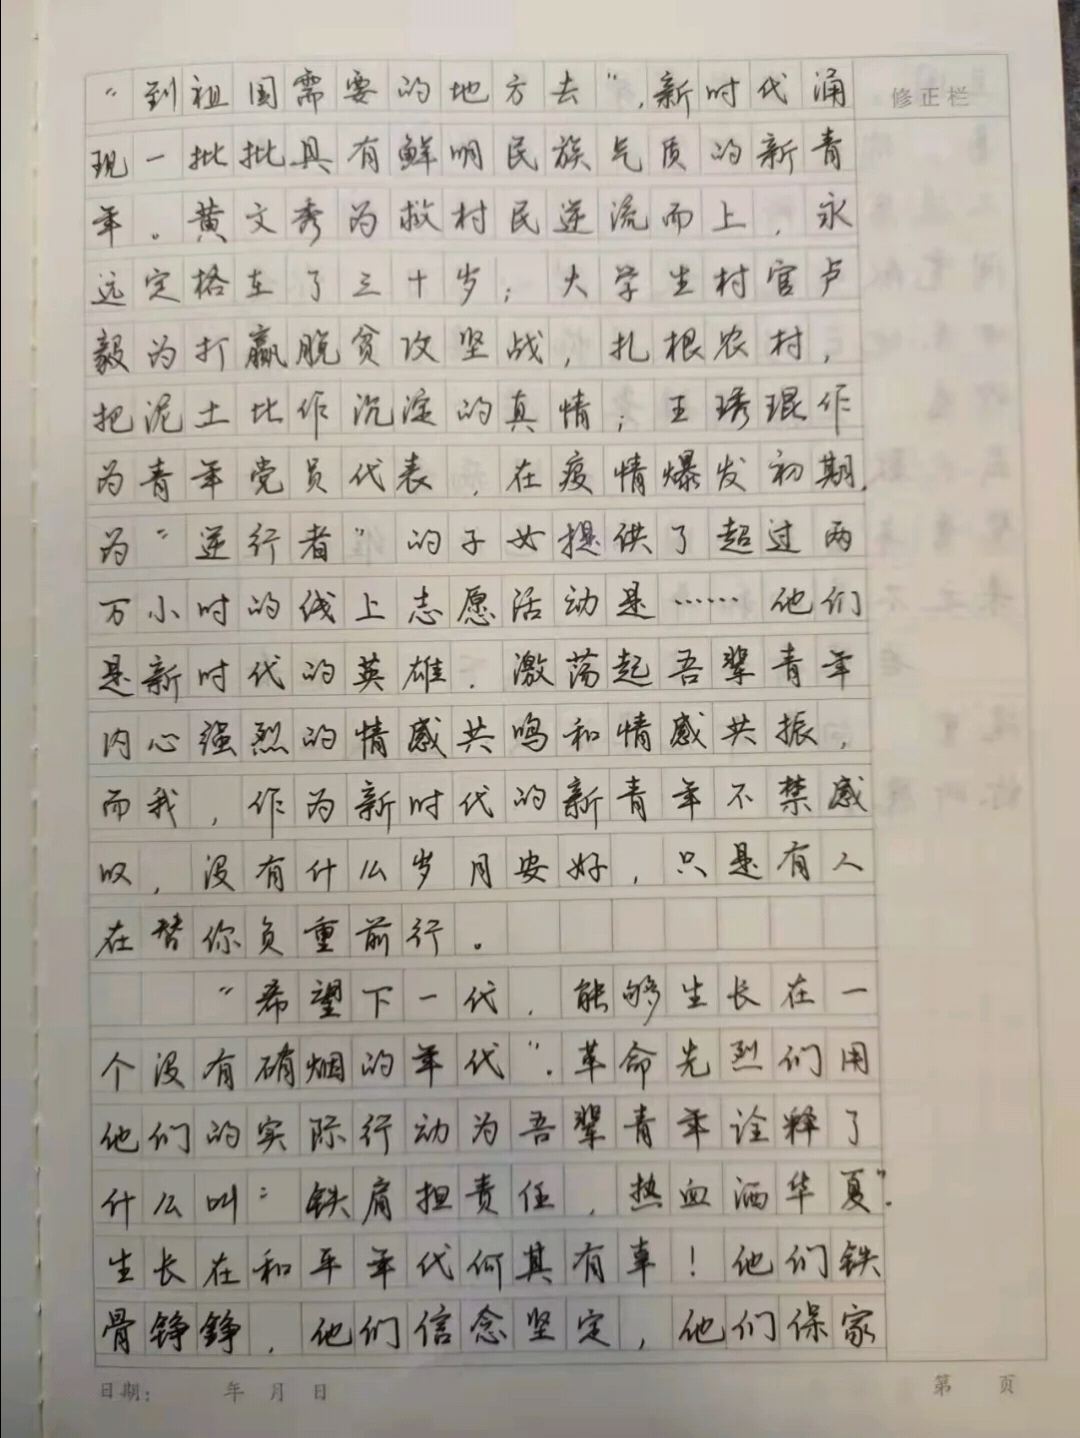 “到祖国需要的地方去”,新时代涌
修正栏
现一批批具有鲜明民族气质的新青
年。黄文秀为救村民逆流而上,永
远定格在了三十岁;大学生村官卢
毅为打赢脱贫攻坚战,扎根农村,
把泥土比作沉淀的真情;王琇琨作
为青年党员代表,在疫情爆发初期,
为“逆行者”的子女提供了超过两
万小时的线上志愿活动是……他们
是新时代的英雄.激荡起吾辈青年
内心强烈的情感共鸣和情感共振,
而我,作为新时代的新青年不禁感
叹,没有什么岁月安好,只是有人
在替你负重前行。
“希望下一代,能够生长在一
个没有硝烟的年代”.革命先烈们用
他们的实际行动为吾辈青年诠释了
什么叫“铁肩担责任,热血洒华夏”.
生长在和平年代何其有幸!他们铁
骨铮铮,他们信念坚定,他们保家
日期: 年 月 日
第 页